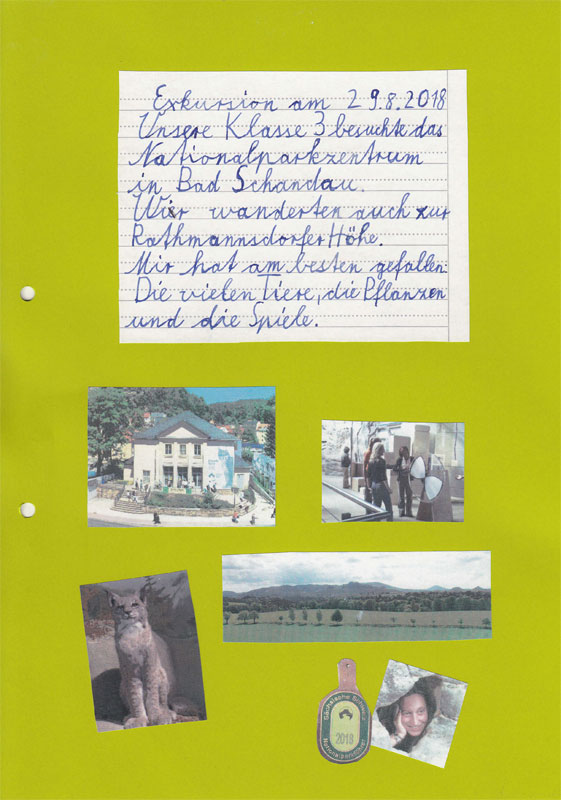 Exkursion am 29.8.2018
Unsere Klasse 3 besuchte das
Nationalparkzentrum
in Bad Schandau.
Wir wanderten auch zur
Rathmannsdorfer Höhe.
Mir hat am besten gefallen:
Die vielen Tiere, die Pflanzen
und die Spiele.
Sächsische Schweiz
2018